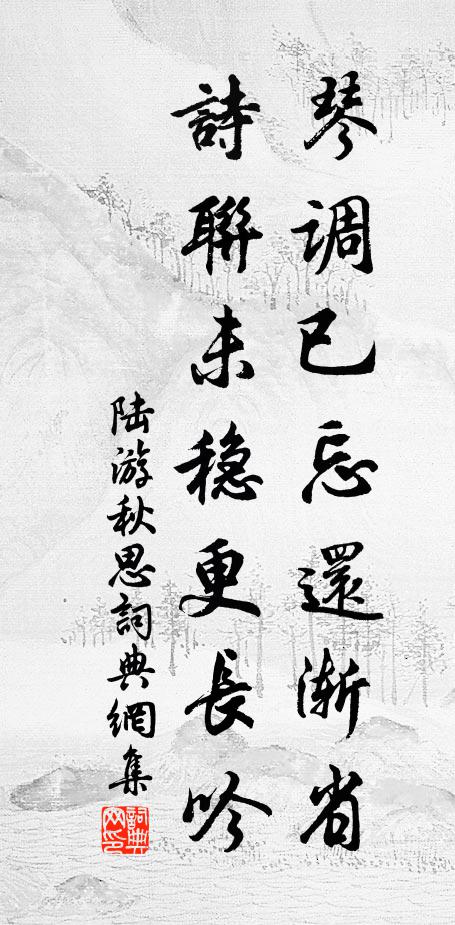 琴調已忘還漸省
詩聯未稳更長吟
陆游秋思詞典網集
詞典网印